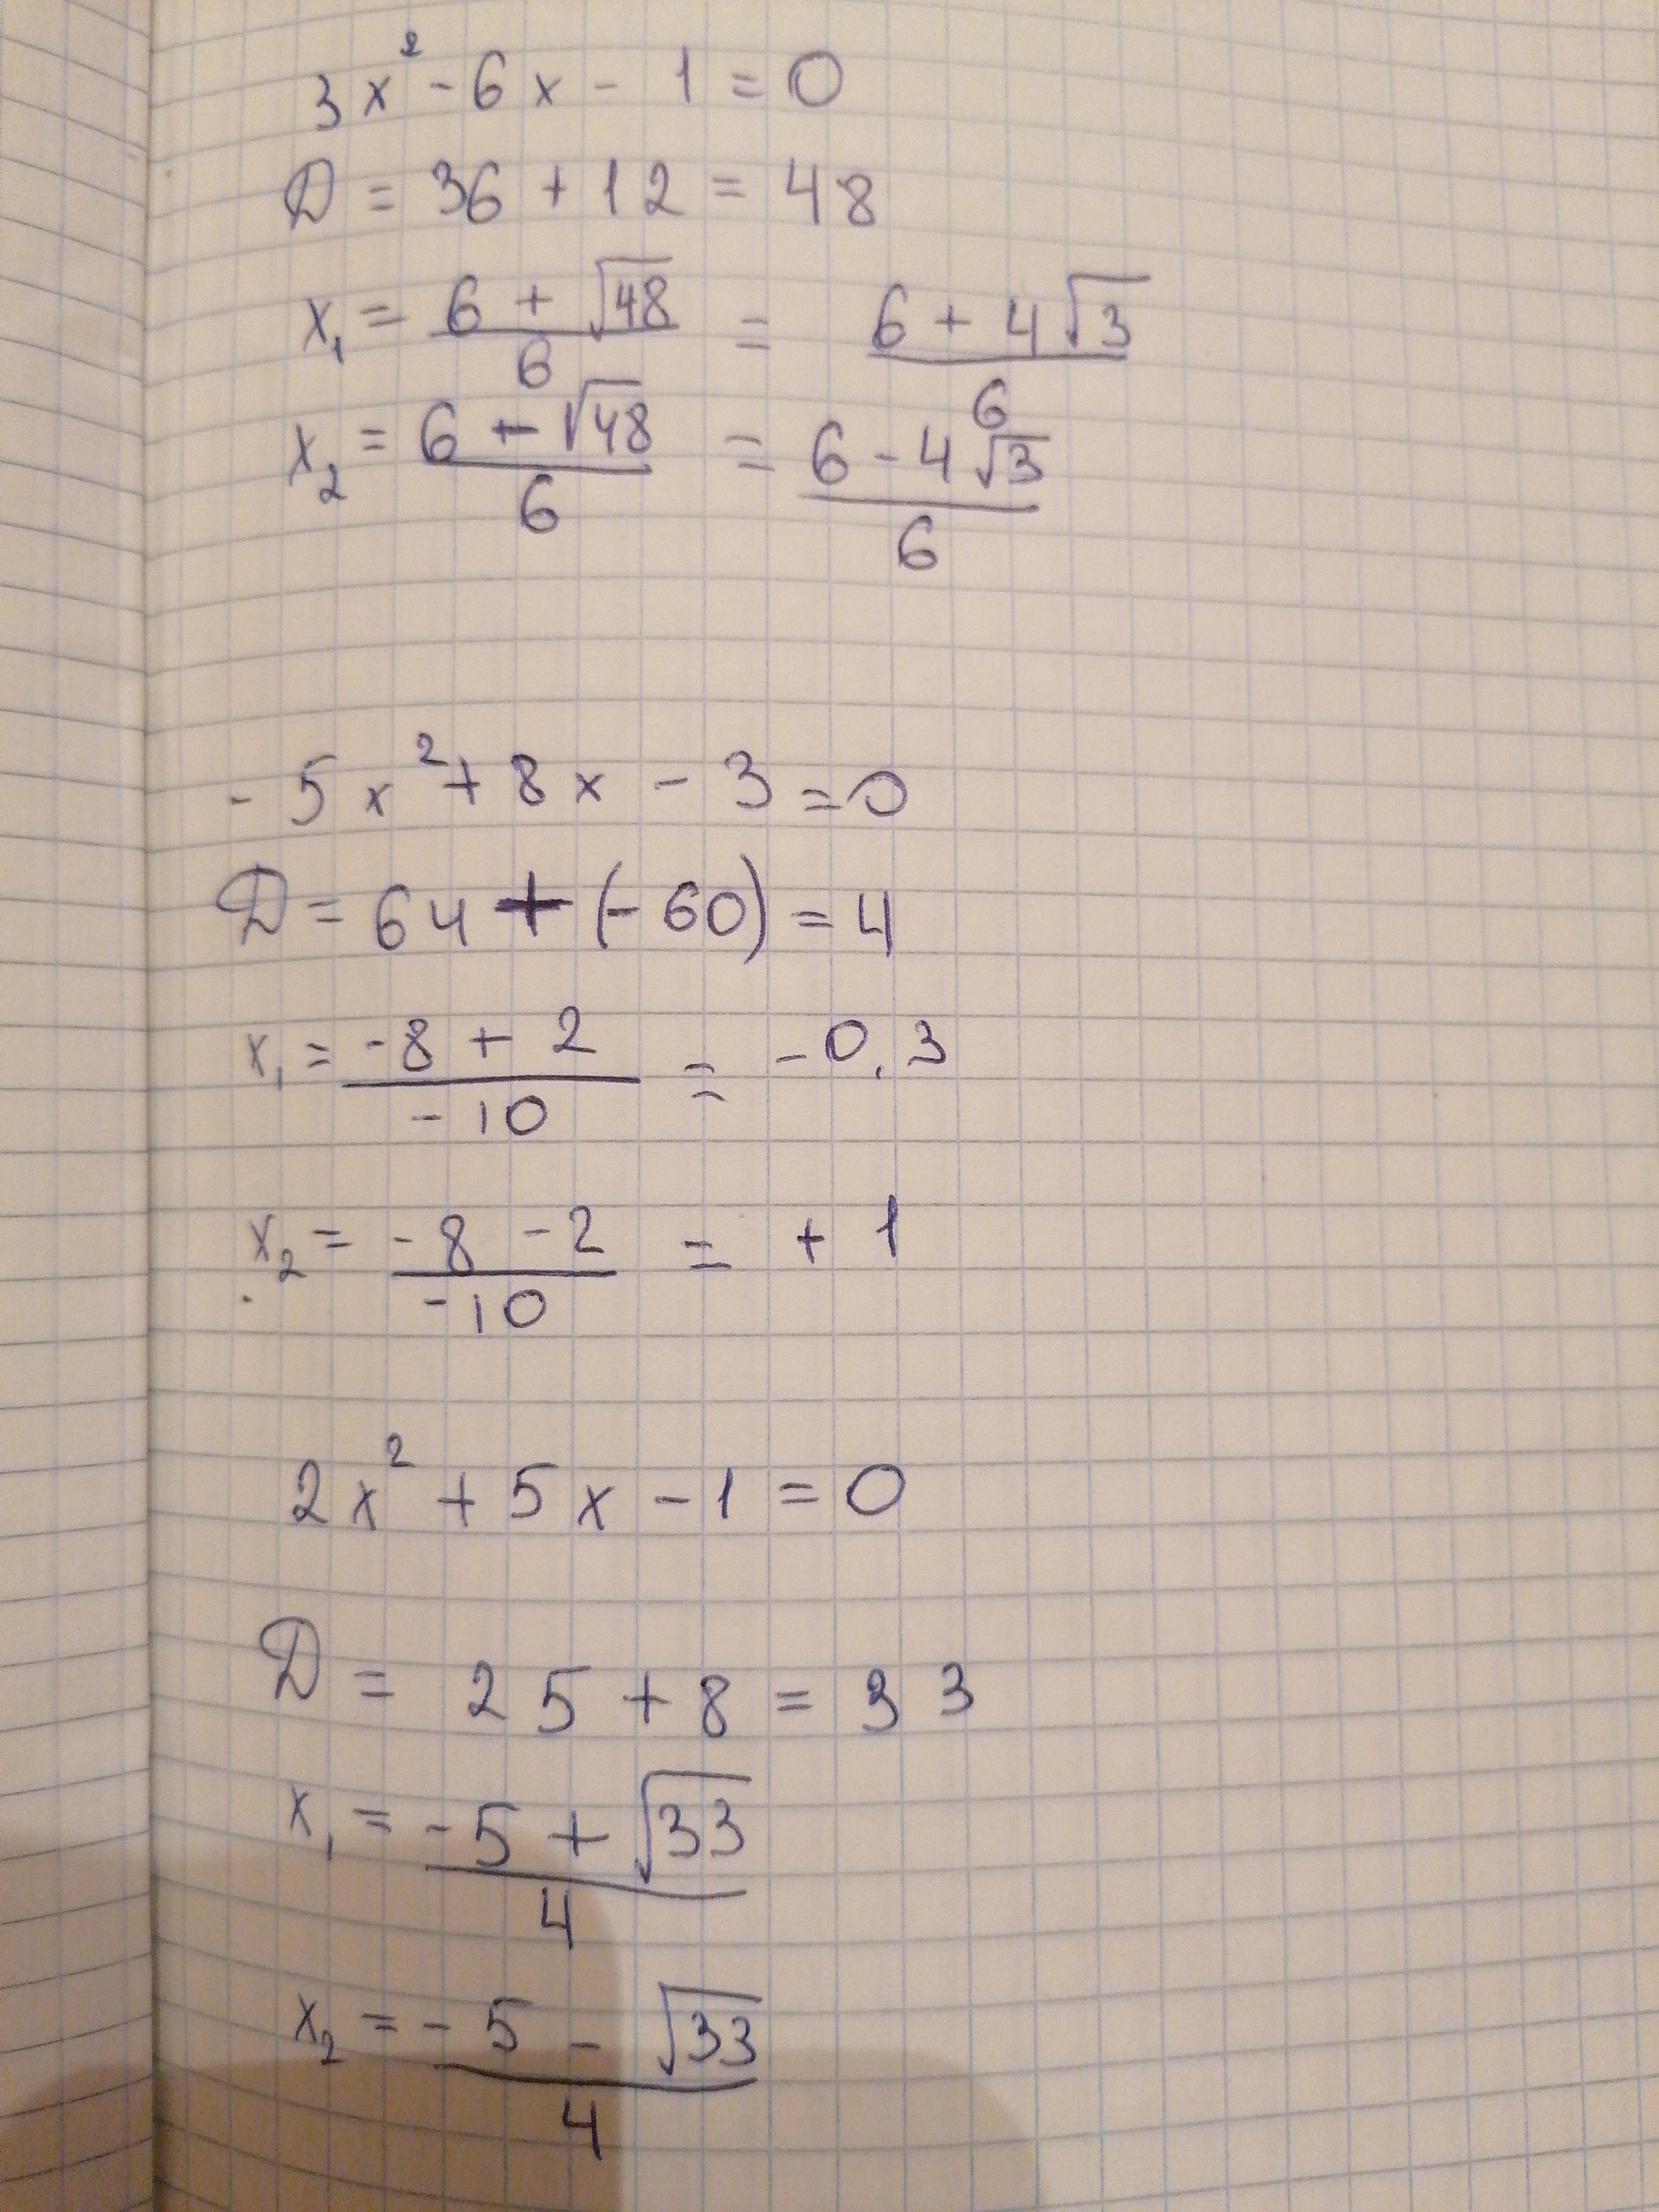 3x² - 6x - 1 = 0
D = 36 + 12 = 48
x₁ = (6 + √48)/6 = (6 + 4√3)/6
x₂ = (6 - √48)/6 = (6 - 4√3)/6
- 5x² + 8x - 3 = 0
D = 64 + (-60) = 4
x₁ = (-8 + 2)/(-10) = -0.3
x₂ = (-8 - 2)/(-10) = + 1
2x² + 5x - 1 = 0
D = 25 + 8 = 33
x₁ = (-5 + √33)/4
x₂ = (-5 - √33)/4